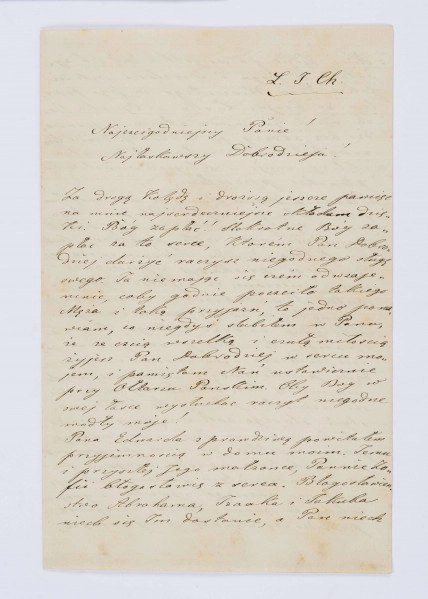 L. J. Ch.
Najczcigodniejszy Panie!
Najłaskawszy Dobrodzieju!
Za drogą kolędę i droższą jeszcze pamięć
na mnie najserdeczniejsze składam dzię-
ki. Bóg zapłać! Stokrotne Bóg za-
płać za to serce, którem Pan Dobro-
dziej darzyć raczysz niegodnego sługę
swego. Ja nie mając się czem odwzaje-
mnić, coby godnie poczciło takiego
Męża i taką przyjaźń, to jedno pona
wiam, co niegdyś ślubiłem w Panu,
że ze czcią wszelką i czułą miłością
żyjesz Pan Dobrodziej w sercu mo-
jem, i pamiętam Nań ustawicznie
przy Ołtarzu Pańskim. Oby Bóg w
swej łasce wysłuchać raczył niegodne
modły moje!
Pana Edwarda z prawdziwą powitałem
przyjemnością w domu moim. Jemu
i przyszłej Jego małżonce, Pannie Zo-
fii błogosławię z serca. Błogosławień
stwo Abrahama, Izaaka i Jakuba
niech się Im dostanie, a Pan niech